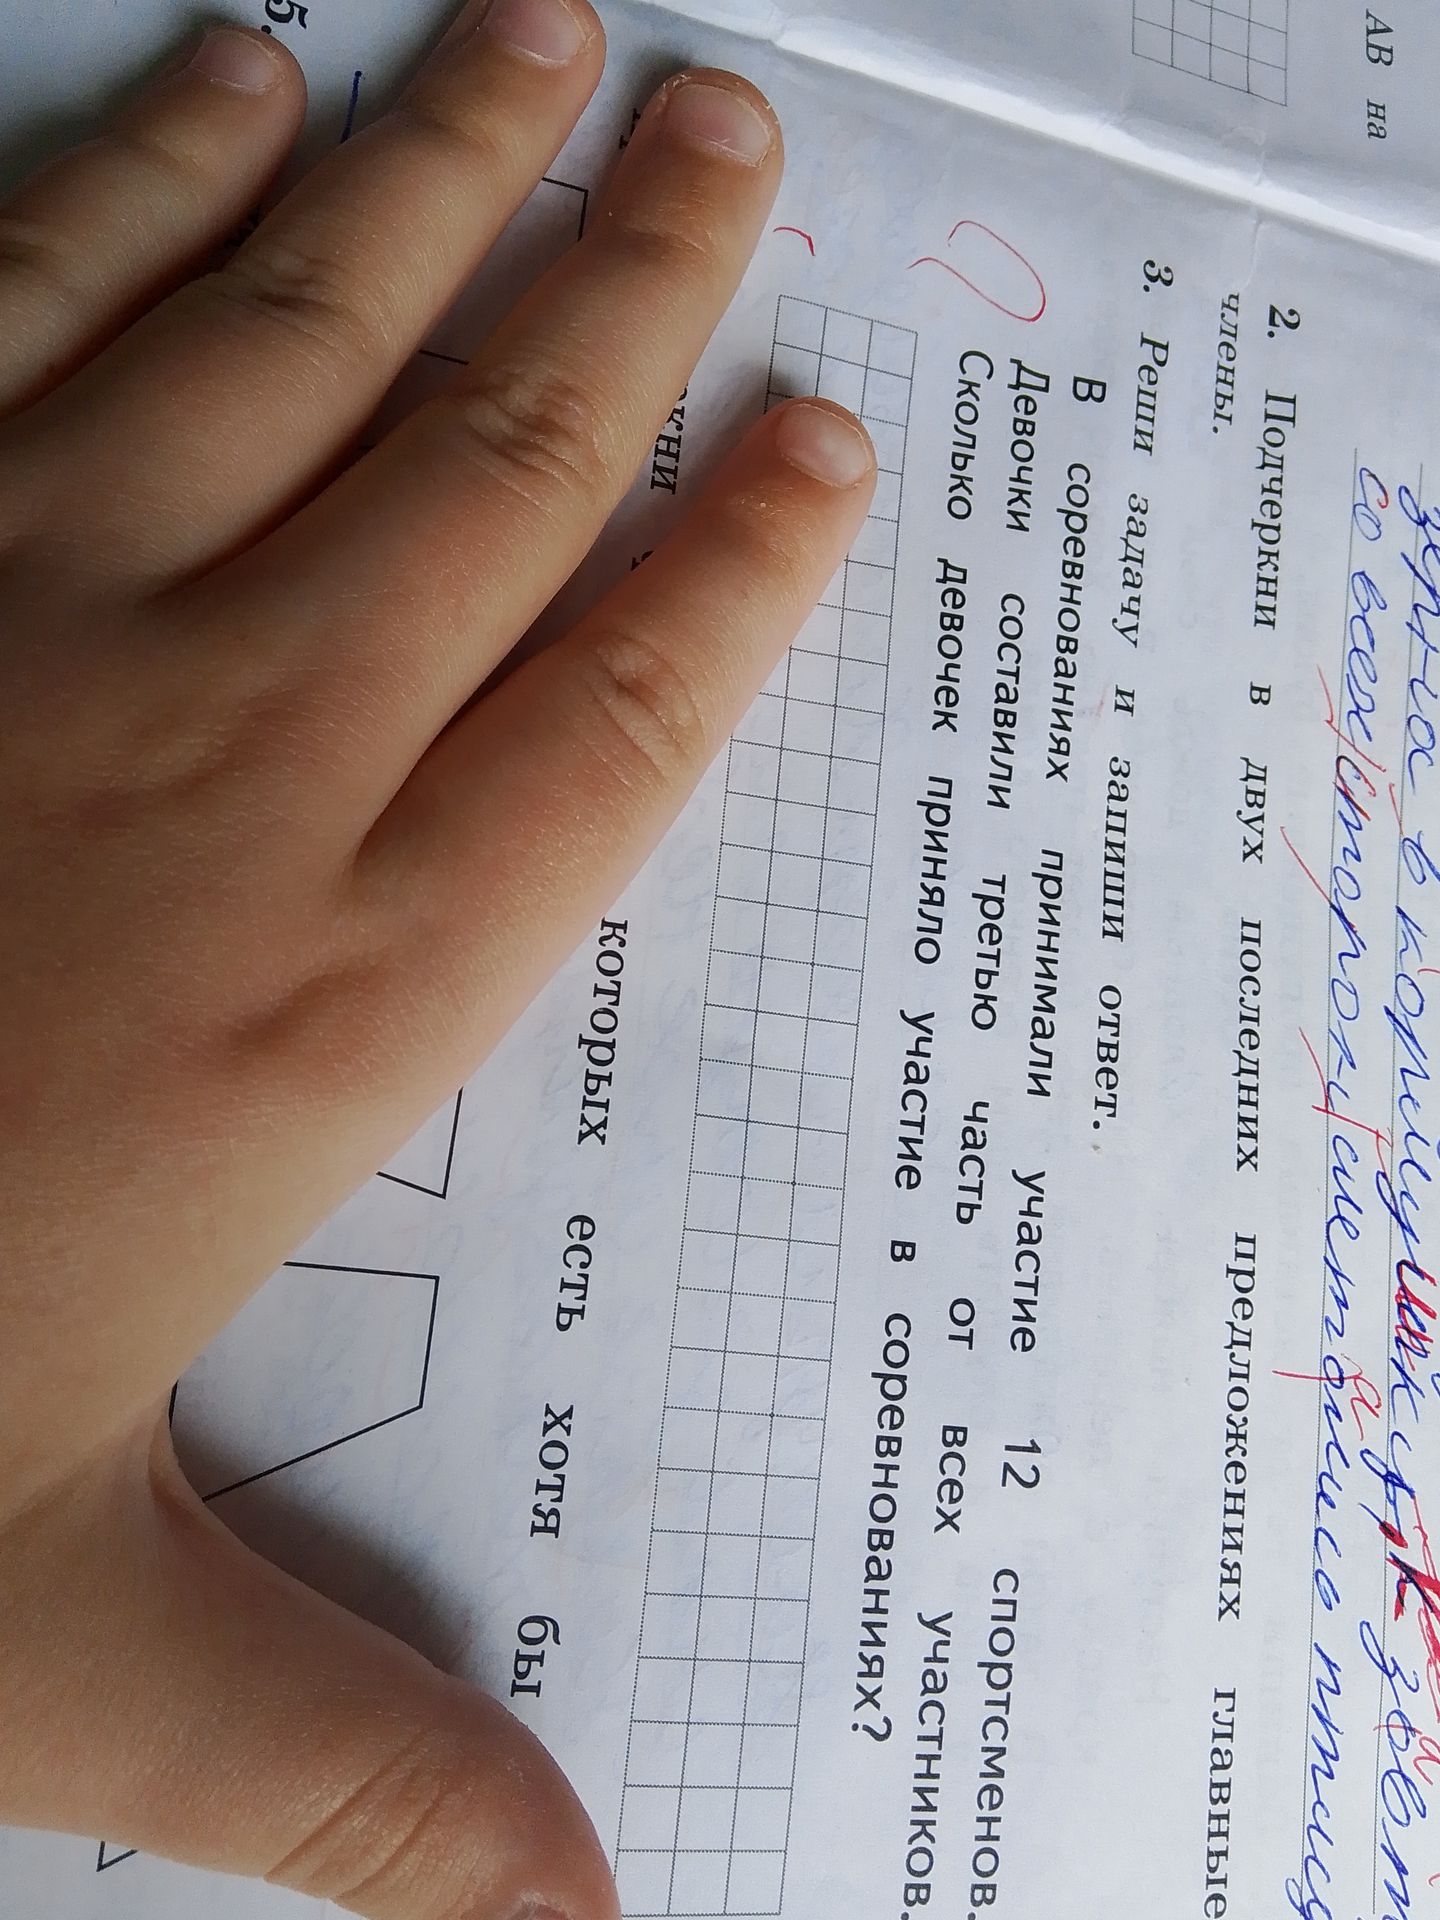 АВ на
со всех сторон слетались птицы
2. Подчеркни в двух последних предложениях главные
члены.
3. Реши задачу и запиши ответ.
В соревнованиях принимали участие 12 спортсменов.
Девочки составили третью часть от всех участников.
Сколько девочек приняло участие в соревнованиях?
которых есть хотя бы
5.